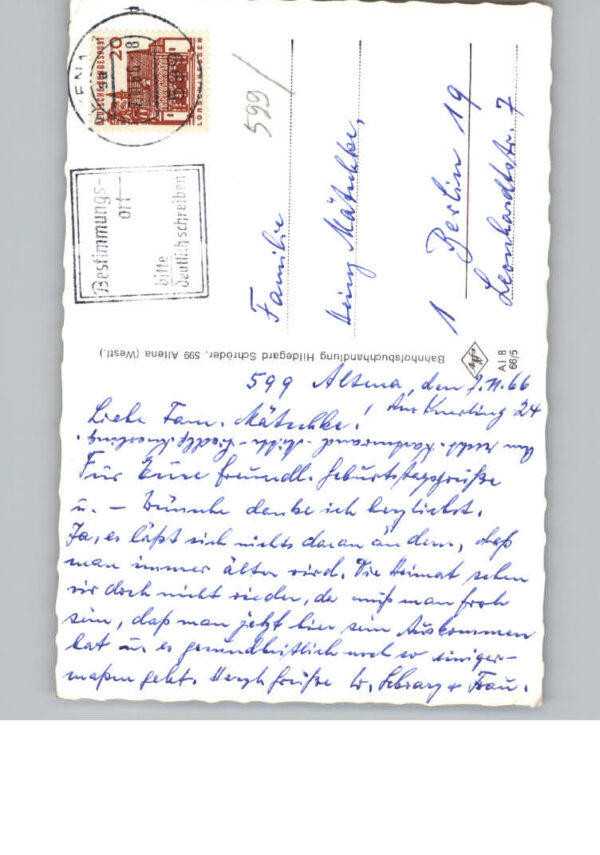 DEUTSCHE BUNDESPOST
20
LORSCH/HESSEN
599/
Bestimmungs-
ort
bitte
deutlich schreiben
Familie
Heinz Mätschke,
1 Berlin 19
Leonhardtstr. 7
Bahnhofsbuchhandlung Hildegard Schröder, 599 Altena (Westf.)
A I 8
66/5
599 Altena, den 7.11.66
Am Knerling 24
Liebe Fam. Mätschke!
Für Eure freundl. Geburtstagsgrüße
u. – Wünsche danke ich herzlichst.
Ja, es läßt sich nichts daran ändern, daß
man immer älter wird. Die Heimat sehen
wir doch nicht wieder, da muß man froh
sein, daß man jetzt hier sein Auskommen
hat u. es gesundheitlich noch so einiger-
maßen geht. Herzl. Grüße u. Frau.